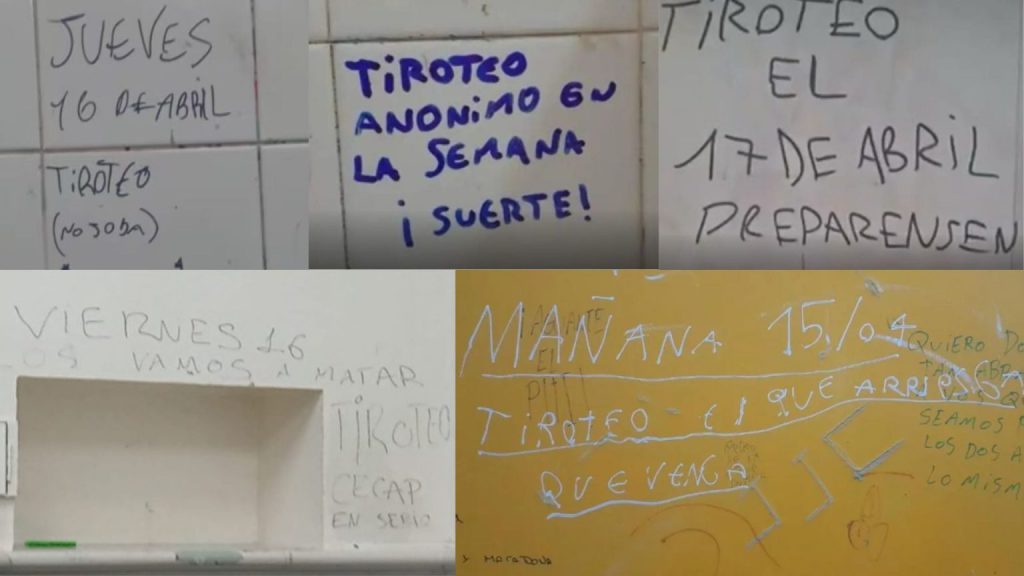 JUEVES
16 DE ABRIL
TIROTEO
(NO JODA)
TIROTEO
ANONIMO EN
LA SEMANA
¡SUERTE!
TIROTEO
EL
17 DE ABRIL
PREPARENSEN
VIERNES 16
LOS VAMOS A MATAR
TIROTEO
CECAP
EN SERIO
MAÑANA 15/04
TIROTEO EL QUE ARRIESGA
QUE VENGA
AGUANTE
EL
QUIERO
SEAMOS
LOS DOS
LO MISM
Y MARADONA